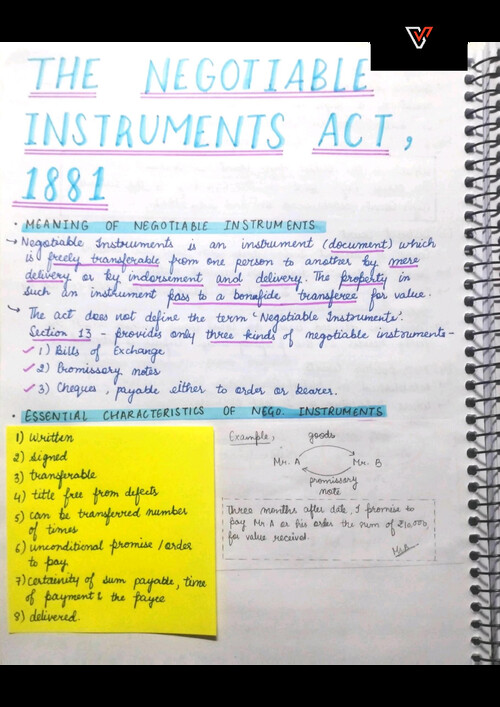 THE NEGOTIABLE
INSTRUMENTS ACT,
1881
• MEANING OF NEGOTIABLE INSTRUMENTS
→ Negotiable Instruments is an instrument (document) which
is freely transferable from one person to another by mere
delivery or by indorsement and delivery. The property in
such an instrument pass to a bonafide transferee for value.
→ The act does not define the term 'Negotiable Instruments'.
Section 13 - provides only three kinds of negotiable instruments-
✓ 1) Bills of Exchange
✓ 2) Promissory notes
✓ 3) Cheques, payable either to order or bearer.
• ESSENTIAL CHARACTERISTICS OF NEGO. INSTRUMENTS
1) written
2) signed
3) transferable
4) title free from defects
5) can be transferred number
of times
6) unconditional promise/order
to pay
7) certainity of sum payable, time
of payment & the payee
8) delivered.
Example,
goods
Mr. A
Mr. B
promissory
note
Three months after date, I promise to
pay Mr A or his order the sum of ₹10,000,
for value received.